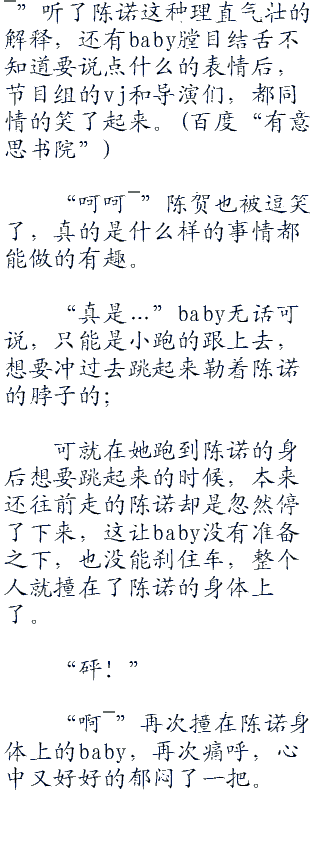 ¯”听了陈诺这种理直气壮的
解释，还有baby膛目结舌不
知道要说点什么的表情后，
节目组的vj和导演们，都同
情的笑了起来。(百度“有意
思书院”)
“呵呵¯”陈贺也被逗笑
了，真的是什么样的事情都
能做的有趣。
“真是…”baby无话可
说，只能是小跑的跟上去，
想要冲过去跳起来勒着陈诺
的脖子的;
可就在她跑到陈诺的身
后想要跳起来的时候，本来
还往前走的陈诺却是忽然停
了下来，这让baby没有准备
之下，也没能刹住车，整个
人就撞在了陈诺的身体上
了。
“砰！”
“啊¯”再次撞在陈诺身
体上的baby，再次痛呼，心
中又好好的郁闷了一把。